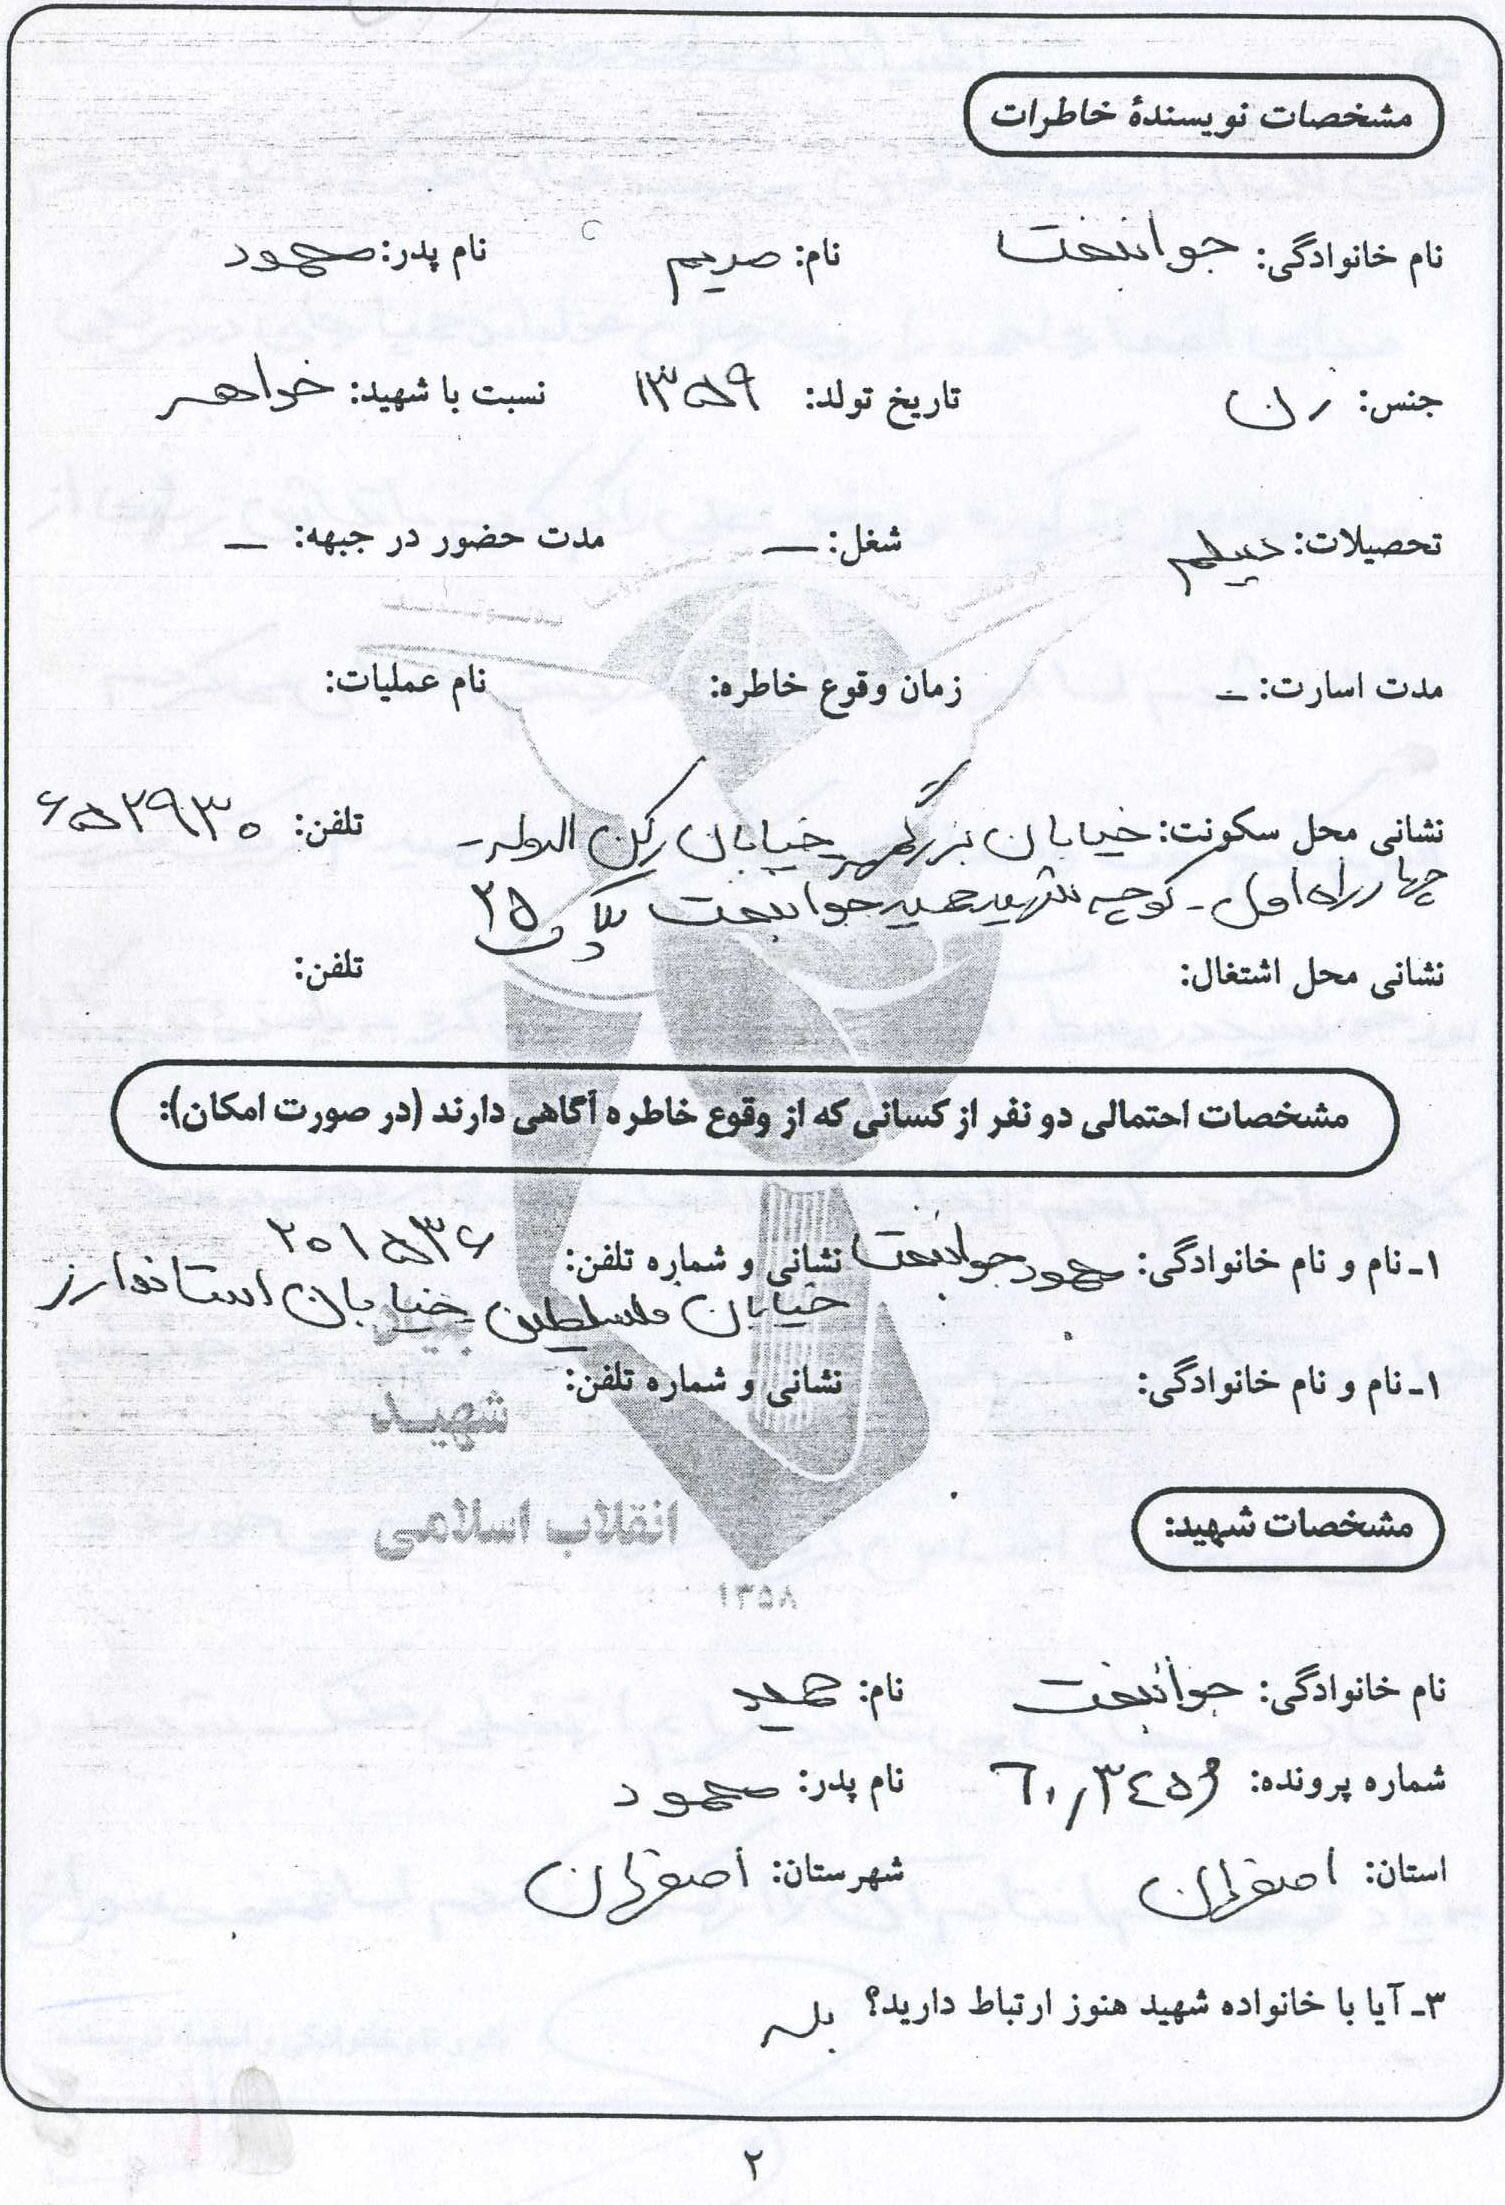 مشخصات نویسندهٔ خاطرات
نام خانوادگی: جوانبخت نام: مریم نام پدر: محمود
جنس: زن تاریخ تولد: ۱۳۵۹ نسبت با شهید: خواهر
تحصیلات: دیپلم شغل: ــ مدت حضور در جبهه: ــ
مدت اسارت: ــ زمان وقوع خاطره: نام عملیات:
نشانی محل سکونت: خیابان بزرگمهر خیابان رکن الدوله - تلفن: ۶۵۲۹۳۰
چهارراه اول - کوچه شهید حمید جوانبخت پلاک ۲۵
نشانی محل اشتغال: تلفن:
مشخصات احتمالی دو نفر از کسانی که از وقوع خاطره آگاهی دارند (در صورت امکان):
۱ـ نام و نام خانوادگی: محمود جوانبخت نشانی و شماره تلفن: ۲۰۱۵۳۶
خیابان فلسطین خیابان استاندارز
۱ـ نام و نام خانوادگی: نشانی و شماره تلفن:
بنیاد
شهید
انقلاب اسلامی
۱۳۵۸
مشخصات شهید:
نام خانوادگی: جوانبخت نام: حمید
شماره پرونده: نام پدر: محمود
استان: اصفهان شهرستان: اصفهان
۳ـ آیا با خانواده شهید هنوز ارتباط دارید؟ بله
۲